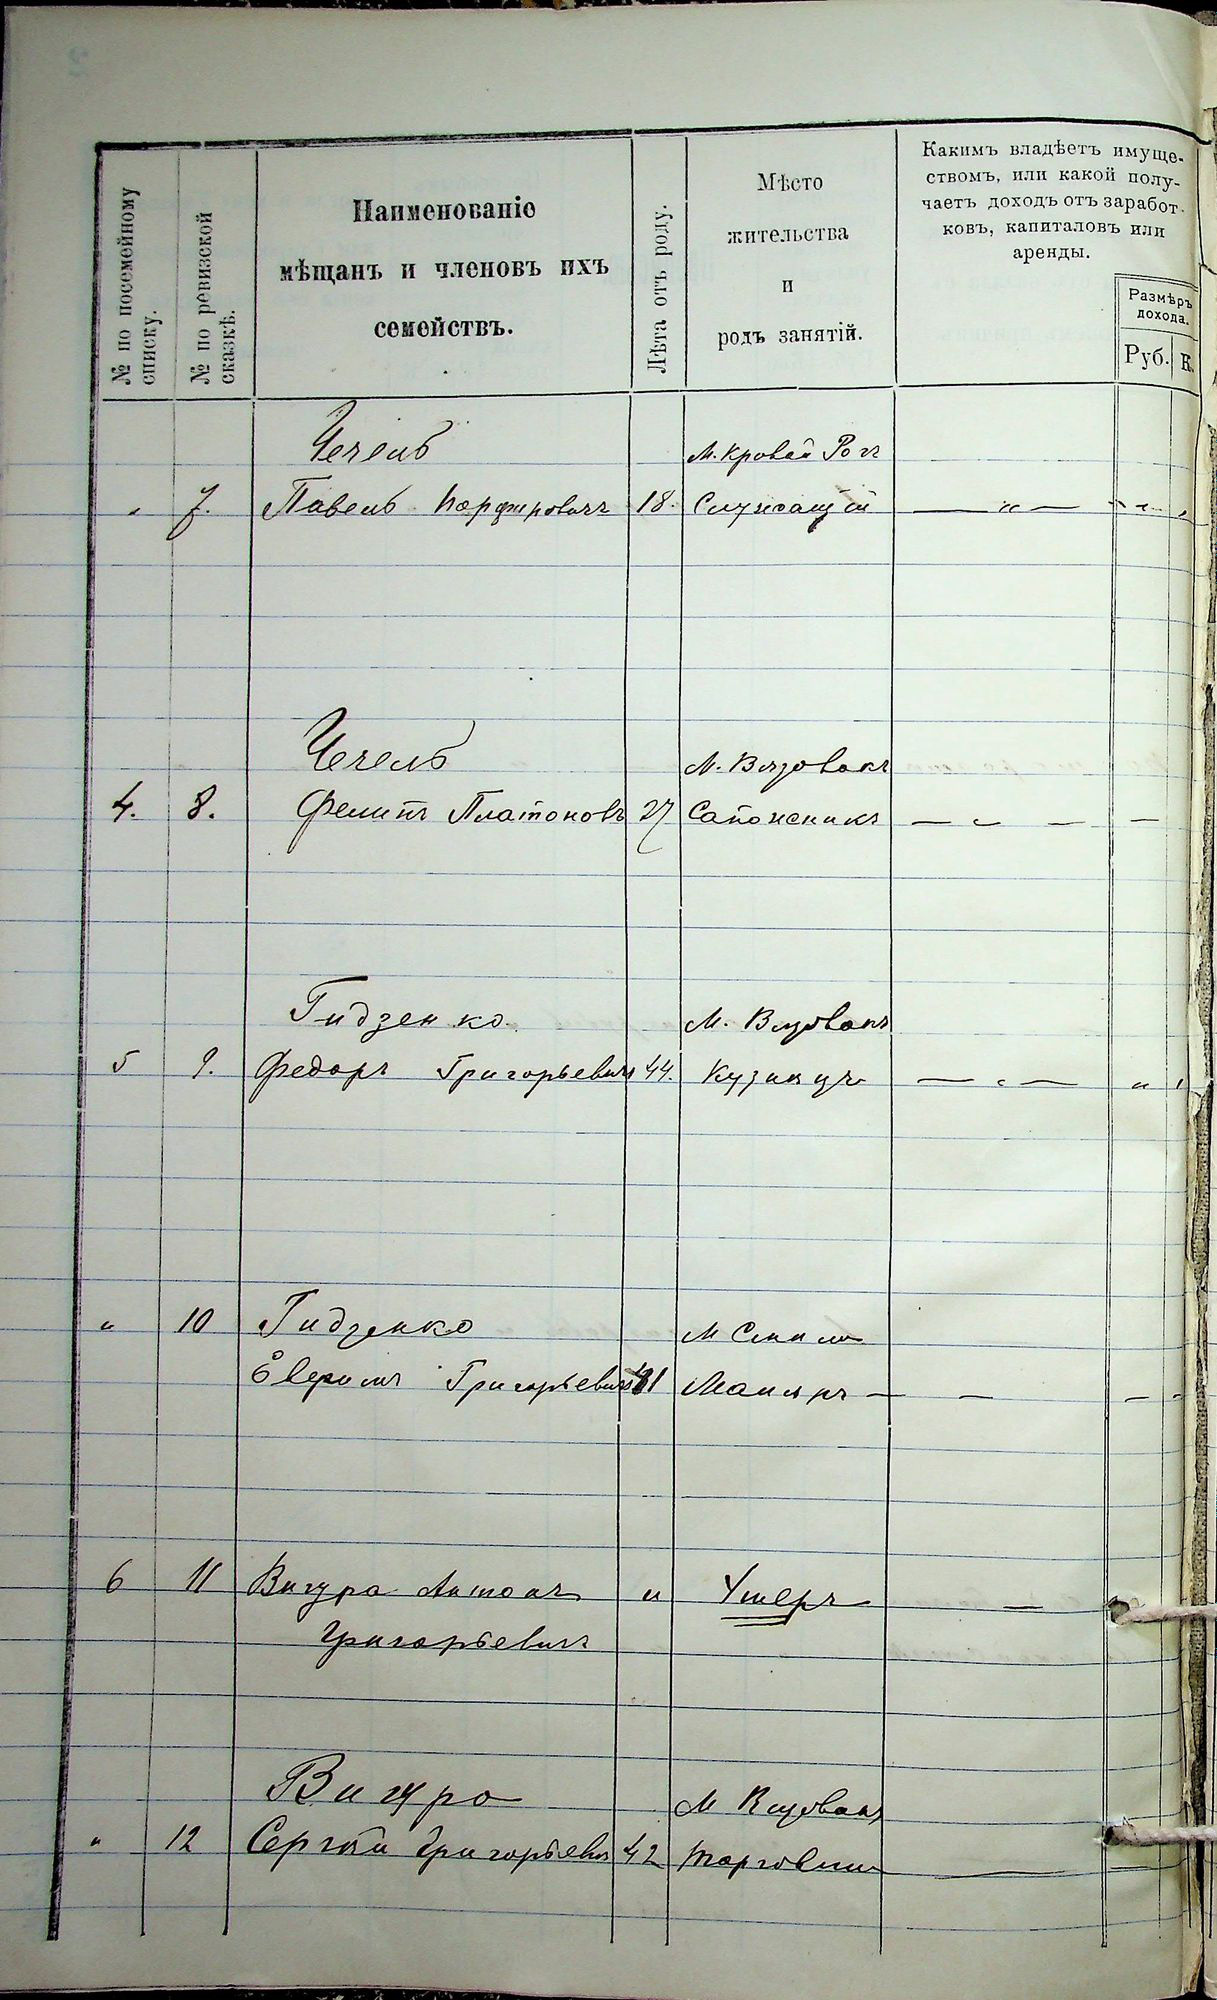 № по посемейному списку.
№ по ревизской сказкѣ.
Наименованіе
мѣщанъ и членовъ ихъ
семействъ.
Лѣта отъ роду.
Мѣсто
жительства
и
родъ занятій.
Какимъ владѣетъ имуще-
ствомъ, или какой полу-
чаетъ доходъ отъ заработ-
ковъ, капиталовъ или
аренды.
Размѣръ
дохода.
Руб. К.
Чечель М. Кровай Рогъ
„ 7. Павелъ Порфировичъ 18. Служащій — „ — „ „
Чечель М. Вязовокъ
4. 8. Филипъ Платоновъ 27 Сапожникъ — „ — —
Гидзенко М. Вязовокъ
5 9. Федоръ Григорьевичъ 44. Кузнецъ — „ — „ „
„ 10 Гидзенко М Смила
Григорьевичъ 41 Маляръ — — — -
6 11 Вигура Антонъ „ Умеръ —
Григорьевичъ
Вигура М Вязовокъ
„ 12 Сергѣй Григорьевич 42 —